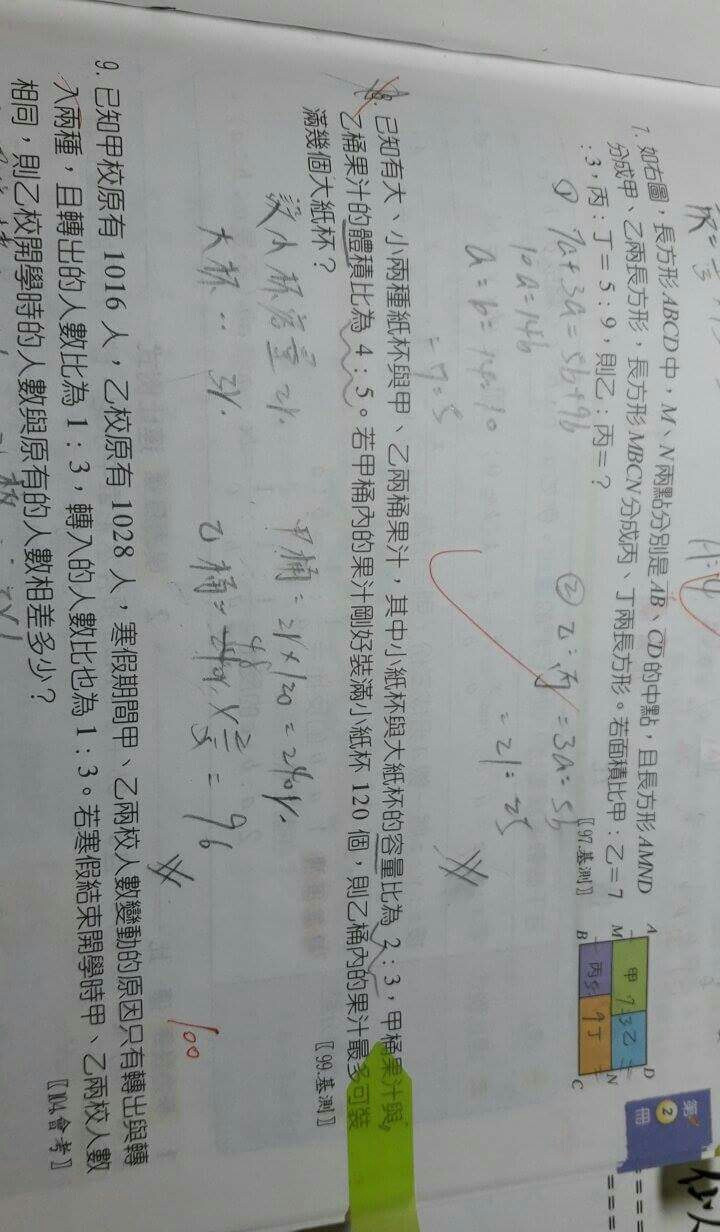 第2冊
7. 如右圖，長方形ABCD中，M、N兩點分別是AB、CD的中點，且長方形AMND
分成甲、乙兩長方形，長方形MBCN分成丙、丁兩長方形。若面積比甲：乙＝7
：3，丙：丁＝5：9，則乙：丙＝？
〖97.基測〗
A
D
M
甲 7
3 乙
N
丙5
9丁
B
C
① 7a+3a=5b+9b
10a=14b
a:b=14:10
=7:5
② 乙:丙=3a:5b
=21:25
8. 已知有大、小兩種紙杯與甲、乙兩桶果汁，其中小紙杯與大紙杯的容量比為 2：3，甲桶果汁與
乙桶果汁的體積比為 4：5。若甲桶內的果汁剛好裝滿小紙杯 120 個，則乙桶內的果汁最多可裝
滿幾個大紙杯？
〖99.基測〗
設小杯容量2r.
大杯‥3r.
甲桶=2r×120=240r.
=96
100
9. 已知甲校原有 1016 人，乙校原有 1028 人，寒假期間甲、乙兩校人數變動的原因只有轉出與轉
入兩種，且轉出的人數比為 1：3，轉入的人數比也為 1：3。若寒假結束開學時甲、乙兩校人數
相同，則乙校開學時的人數與原有的人數相差多少？
〖104.會考〗